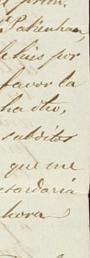 Pakenham
de luis por
favor la
ha dho,
subditos
que me
acordaria
hora